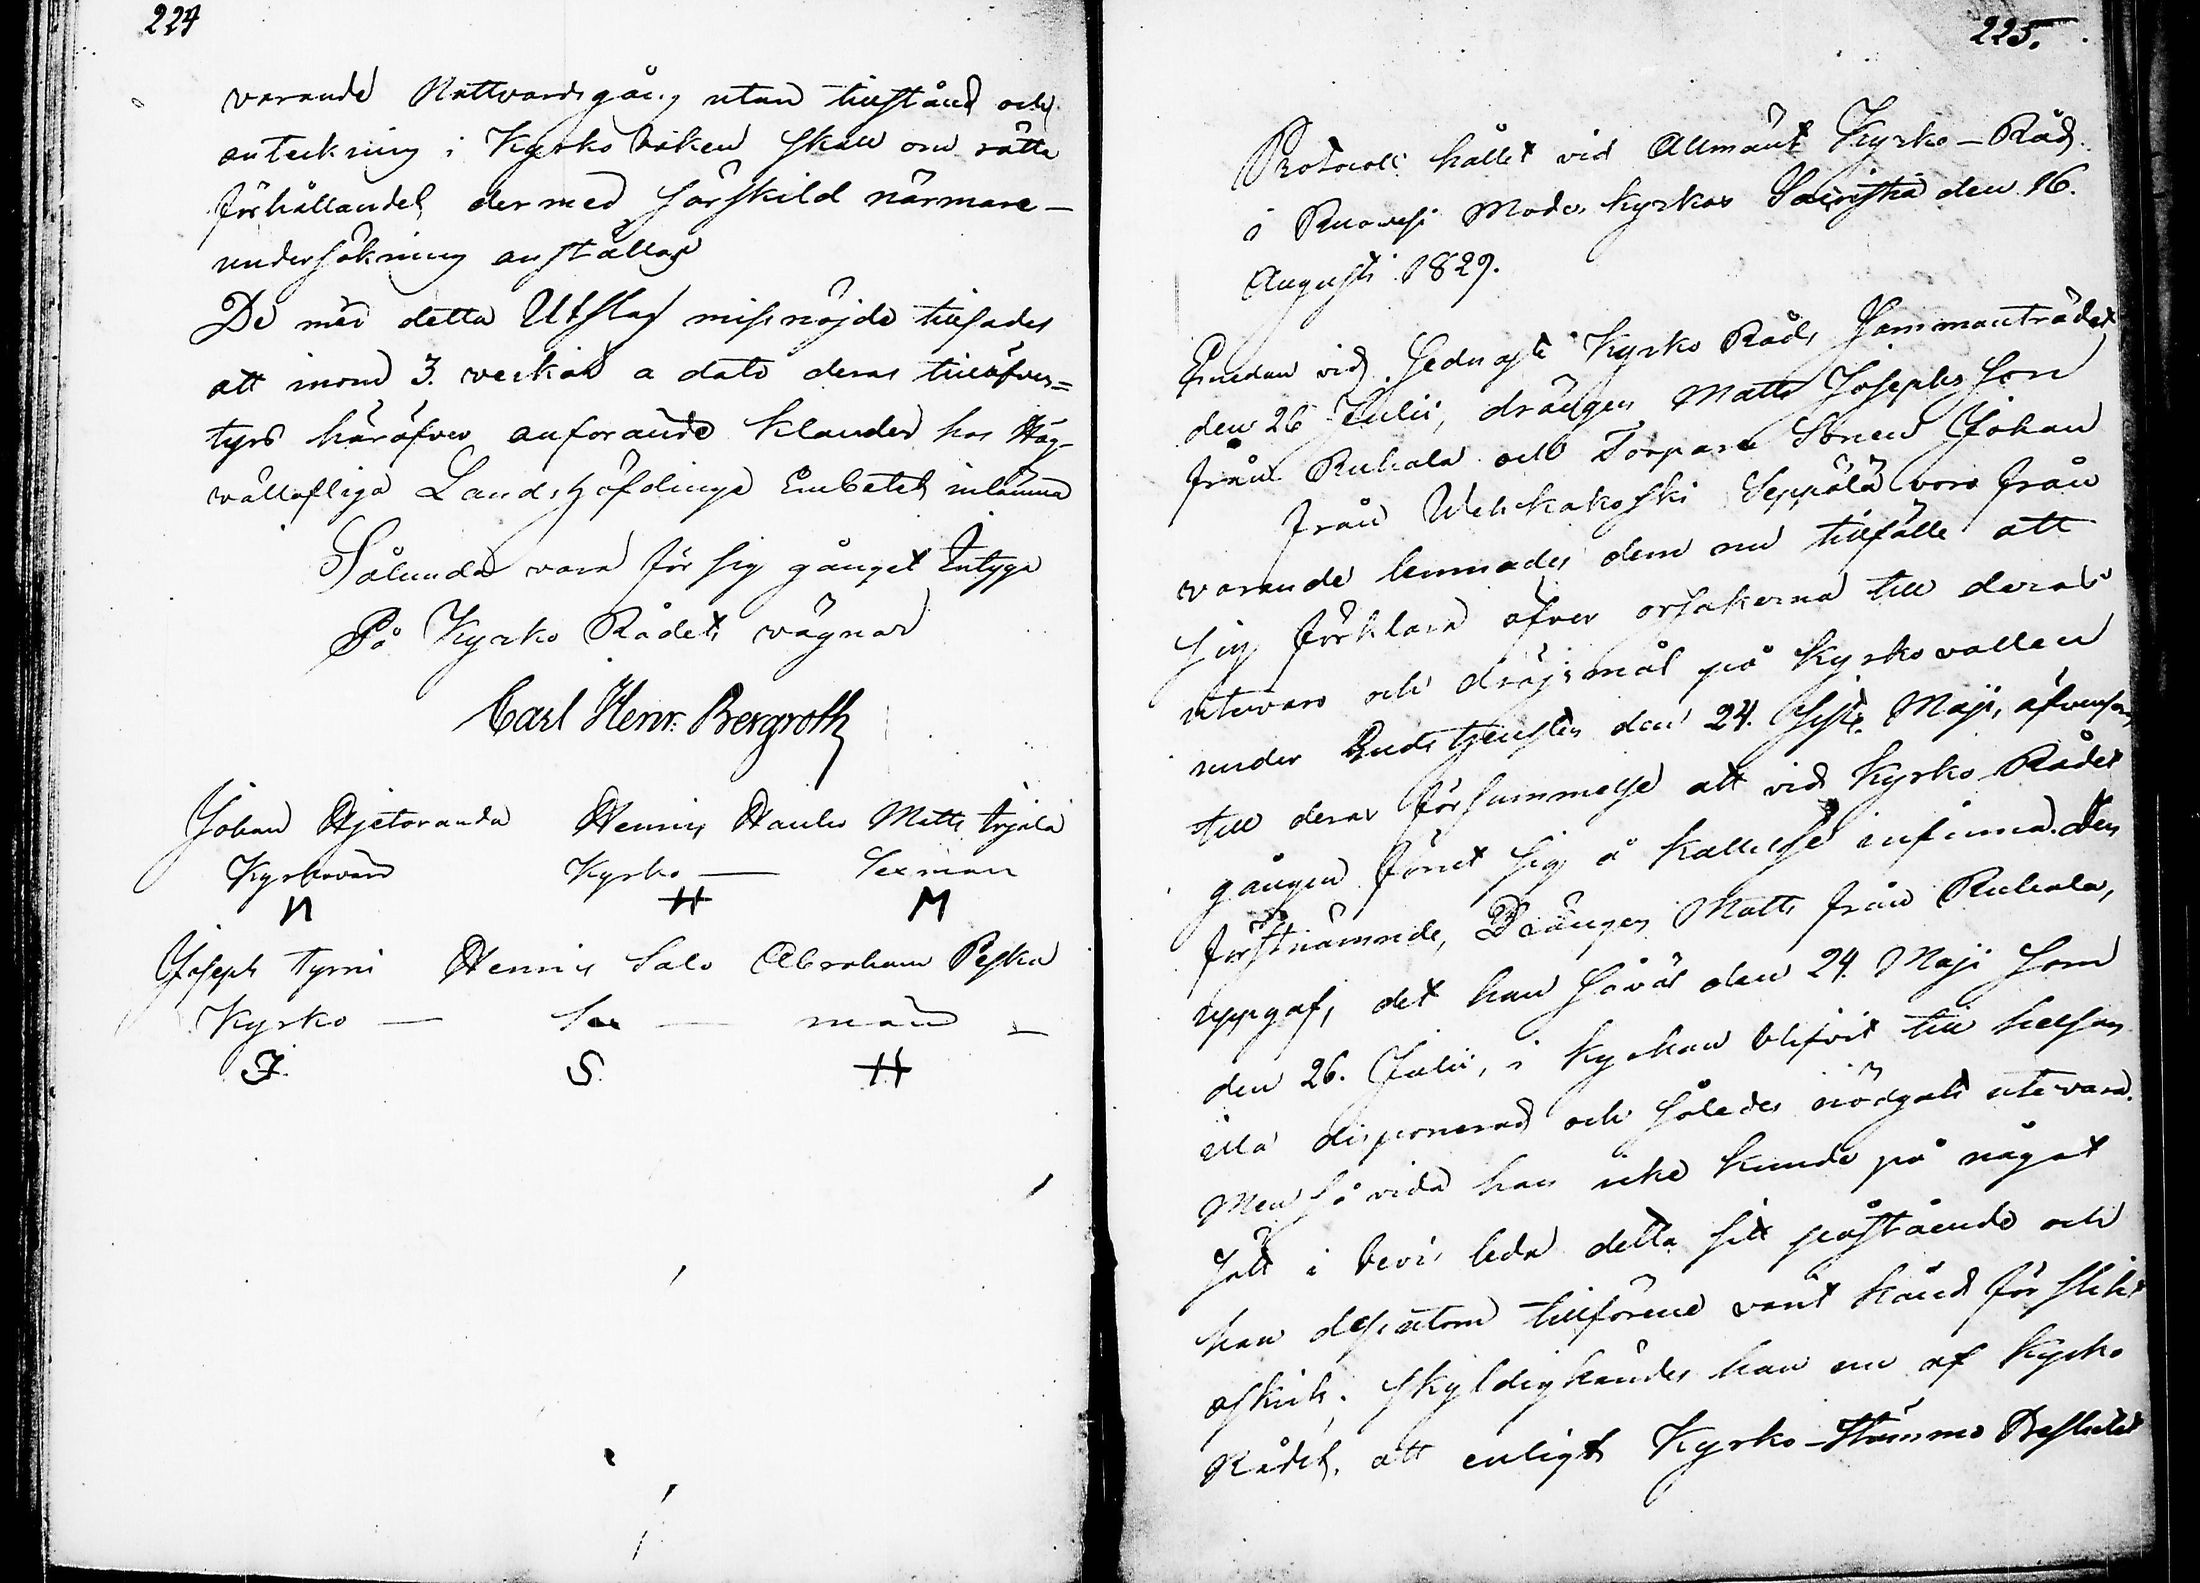 224
varande Nattvardsgång utan tillstånd och
anteckning i Kyrkoboken skall om rätta
förhållandet dermed särskild närmare-
undersökning anställas
De med detta Utslag missnöjde tillsades
att inom 3. veckor a dato deras tilläfven-
tyrs häröfver anförande klander hos Hög-
vällofliga Landshöfdinge Embetet inlämna
Sålunda vara för sig gånget Intyga
På Kyrko Rådets vägnar
Carl Henr. Bergroth
Johan Hjetaranda Henric Hanho Matts Arjala
Kyrkovärd Kyrko — Sexman
N H M
Joseph Tyrni Henric Salo Abraham Peska
Kyrko — Sex — män —
J. S. H
225.
Protocoll hållet vid Allmänt Kyrko-Råd
i Ruovesi Moder kyrkas Sacristia den 16.
Augusti 1829.
Emedan vid sednaste Kyrko Råds Sammanträdet
den 26 Julii, drängen Matts Josephsson
från Ruhala och Torpare Sonen Johan
från Wehkakoski Seppälä voro från
varande lemnades dem nu tillfälle att
sig förklara öfver orsakerna till deras
utevaro och dröjsmål på Kyrkovallen
under Gudstjensten den 24. sistl. Maji, äfvensom
till deras försummelse att vid Kyrko Rådet
gången förut sig å kallelse infinna. Den
förstnämnde, Drängen Matts från Ruhala,
uppgaf, det han såväl den 24. Maji som
den 26. Julii, i kyrkan blifvit till helsan
illa disponerad och således nödgats utevara.
Men så vida han icke kunde på något
sätt i bevis leda detta sitt påstående och
han dessutom tillförene varit känd för slikt
oskick, skyldigkändes han nu af Kyrko
Rådet, att enligt Kyrko-Stämmo Beslutet